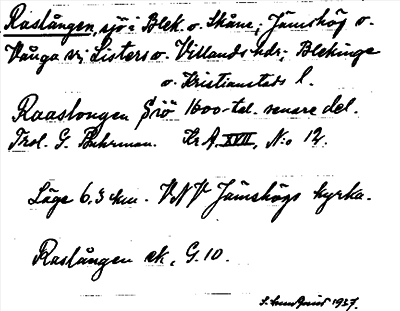 Raslången, sjö i Blek. o. Skåne; Jämshög o.
Vånga s:r, Listers o. Villands hdr; Blekinge
o. Kristianstads l.
Raaslongen Siö 1600-tal. senare del.
Trol. G. Buhrman. Kr A. XVII, N:o 12.
Läge 6.3 km. VNV Jämshögs kyrka.
Raslången ek, G.10.
1927.